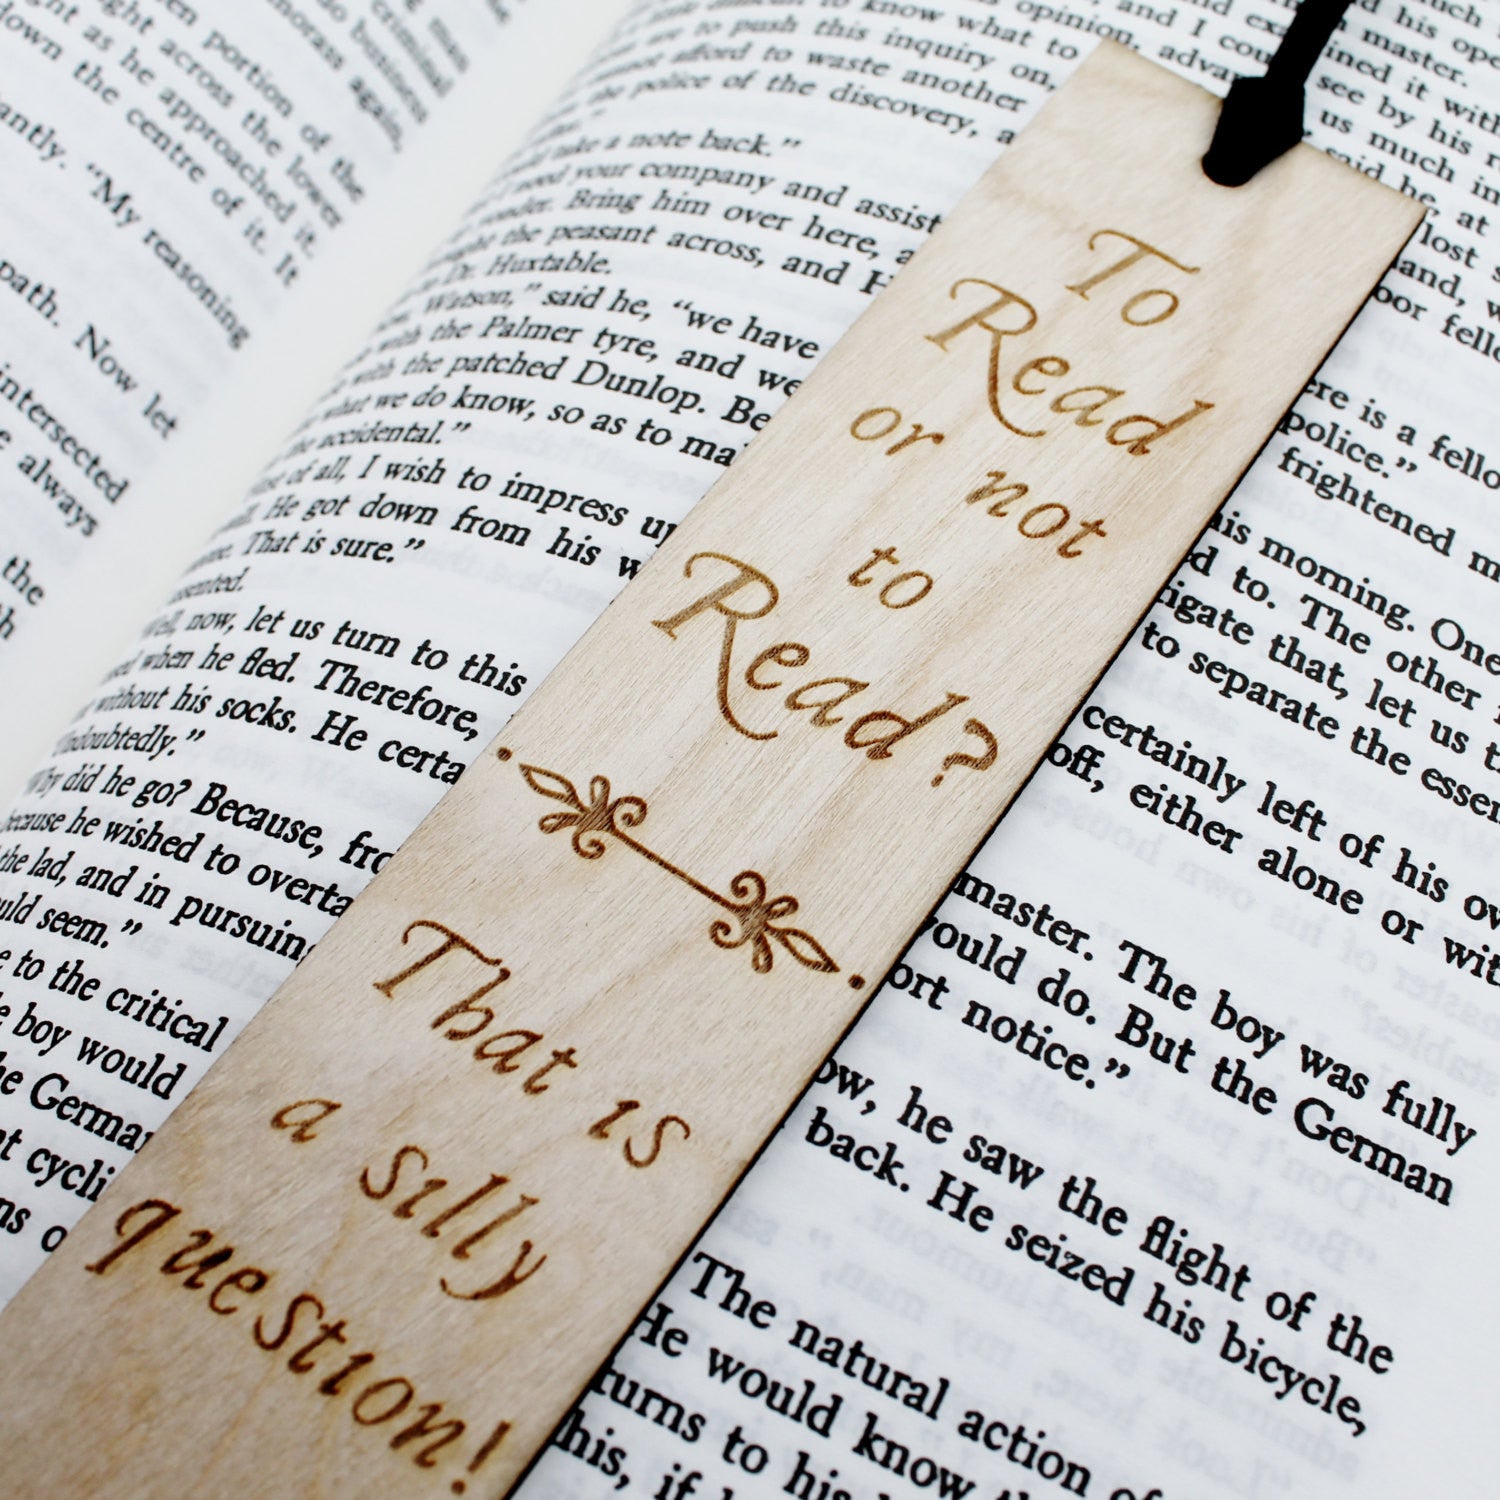 To
Read
or not
to
Read?
That is
a silly
question!
en portion of the
ght across the lower
ght as he approached it.
down the centre of it. It
antly. "My reasoning
path. Now let
intersected
e always
the
to push this inquiry on,
afford to waste another
the police of the discovery, a
take a note back."
need your company and assist
Bring him over here, a
the peasant across, and H
Dr. Huxtable.
Watson," said he, "we have
with the Palmer tyre, and we
with the patched Dunlop. Be
what we do know, so as to ma
the accidental."
of all, I wish to impress up
He got down from his w
That is sure."
Well, now, let us turn to this
when he fled. Therefore,
without his socks. He certa
Undoubtedly."
Why did he go? Because, fro
because he wished to overta
the lad, and in pursuing
uld seem."
e to the critical
e boy would
he German
t cycli
ns o
opinion, advan
and I cou
see by his
us much in
said he, at
lost s
land, w
oor fello
ere is a fello
police."
frightened m
his morning. One
d to. The other
tigate that, let us t
to separate the essen
certainly left of his ow
off, either alone or wit
master. The boy was fully
would do. But the German
ort notice."
ow, he saw the flight of the
back. He seized his bicycle,
The natural action of
He would know th
turns to his
this, if h